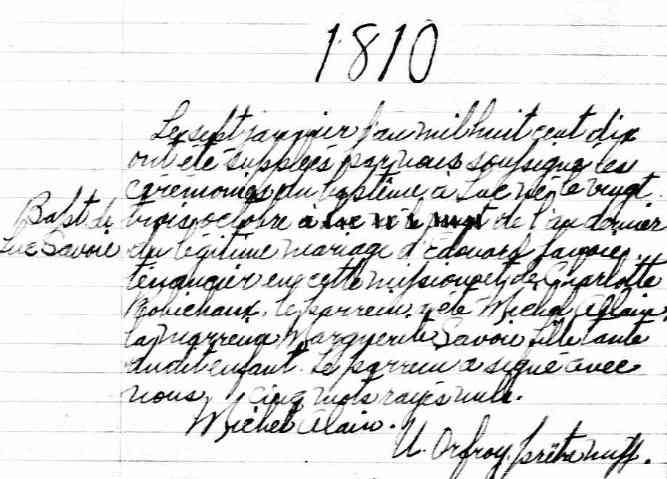 1810
Le sept janvier l'an mil huit cent dix
ont été supplées par nous soussigné les
cérémonies du baptême à Luc né le vingt
Bapt. de
Luc Savoie
trois octobre à de l'an dernier
du légitime mariage d'Edouard Savoie,
tenancier en cette mission et de Charlotte
Robichaux, le parrein a été Michel Alain,
la marreine Marguerite Savoie, tante
dudit enfant. Le parrein a signé avec
nous, cinq mots rayés nuls.
Michel Alain.
U. Orfroy, prêtre miss.